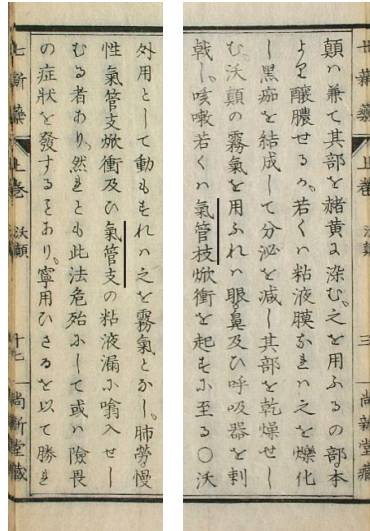 七新薬
上巻
沃顛
三
尚新堂蔵
顛ハ兼て其部を赭黄ニ染む。之を用ふるの部本
より醸膿せるか。若くハ粘液膜なれハ之を爍化
し黒痂を結成して分泌を減し其部を乾燥せし
む。沃顛の霧氣を用ふれハ眼鼻及ひ呼吸器を刺
戟し。咳嗽若くハ氣管枝焮衝を起すに至る〇沃
外用として動もすれハ之を霧氣とかし。肺勞慢
性氣管支焮衝及ひ氣管支の粘液漏に噏入せし
むる者あり。然れとも此法危殆にして或ハ險畏
の症狀を發することあり。寧用ひさるを以て勝れ
七新薬
上巻
沃顛
十七
尚新堂蔵